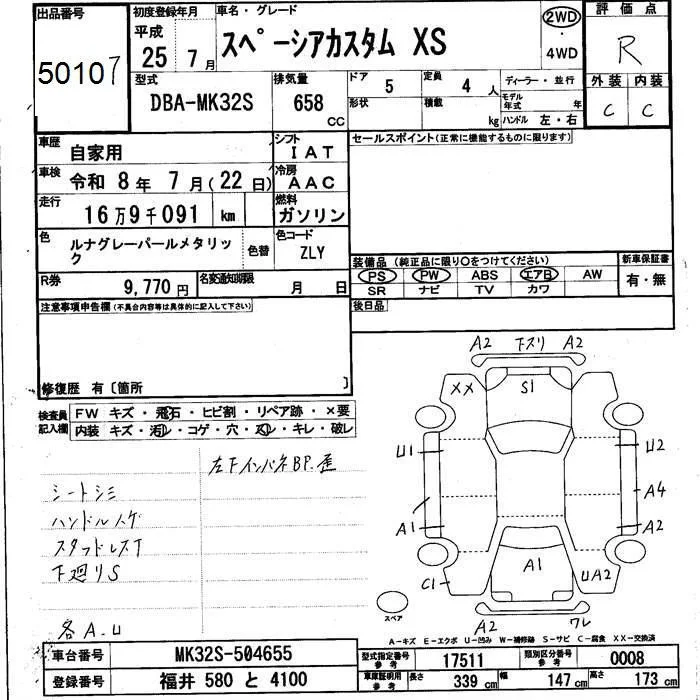 出品番号
50107
初度登録年月
平成
25 7月
車名・グレード
スペーシアカスタム XS
2WD
・
4WD
評価点
R
外装 内装
C C
型式
DBA-MK32S
排気量
658
CC
ドア
5
定員
4 人
形状
積載
kg
ディーラー・並行
モデル年式 年
ハンドル 左・右
車歴
自家用
シフト
IAT
車検
令和 8年 7月(22日)
冷房
AAC
走行
16万9千091 km
燃料
ガソリン
色
ルナグレーパールメタリック
色替
色コード
ZLY
R券
9,770円
名変通知期限
月 日
セールスポイント(正常に機能するものに限ります)
装備品(純正品に限り○をつけてください)
新車保証書
PS PW ABS エアB AW
SR ナビ TV カワ
有・無
後日品
注意事項申告欄(不具合内容等は具体的に記入して下さい)
修復歴 有〔箇所 〕
検査員
記入欄
FW キズ・飛石・ヒビ割・リペア跡・×要
内装 キズ・汚レ・コゲ・穴・スレ・キレ・破レ
左下インパネBP.歪
シートシミ
ハンドルハゲ
スタッドレスT
下廻りS
各A.U
A2 下スリ A2
XX S1
U1 U2
A4
A1 A2
C1 A1 UA2
スペア
A2 ワレ
A-キズ E-エクボ U-凹み W-補修跡 S-サビ C-腐食 XX-交換済
車台番号
MK32S-504655
型式指定番号
参考
17511
類別区分番号
参考
0008
登録番号
福井 580 と 4100
車庫証明用
参考
長さ 339 cm 幅 147 cm 高さ 173 cm